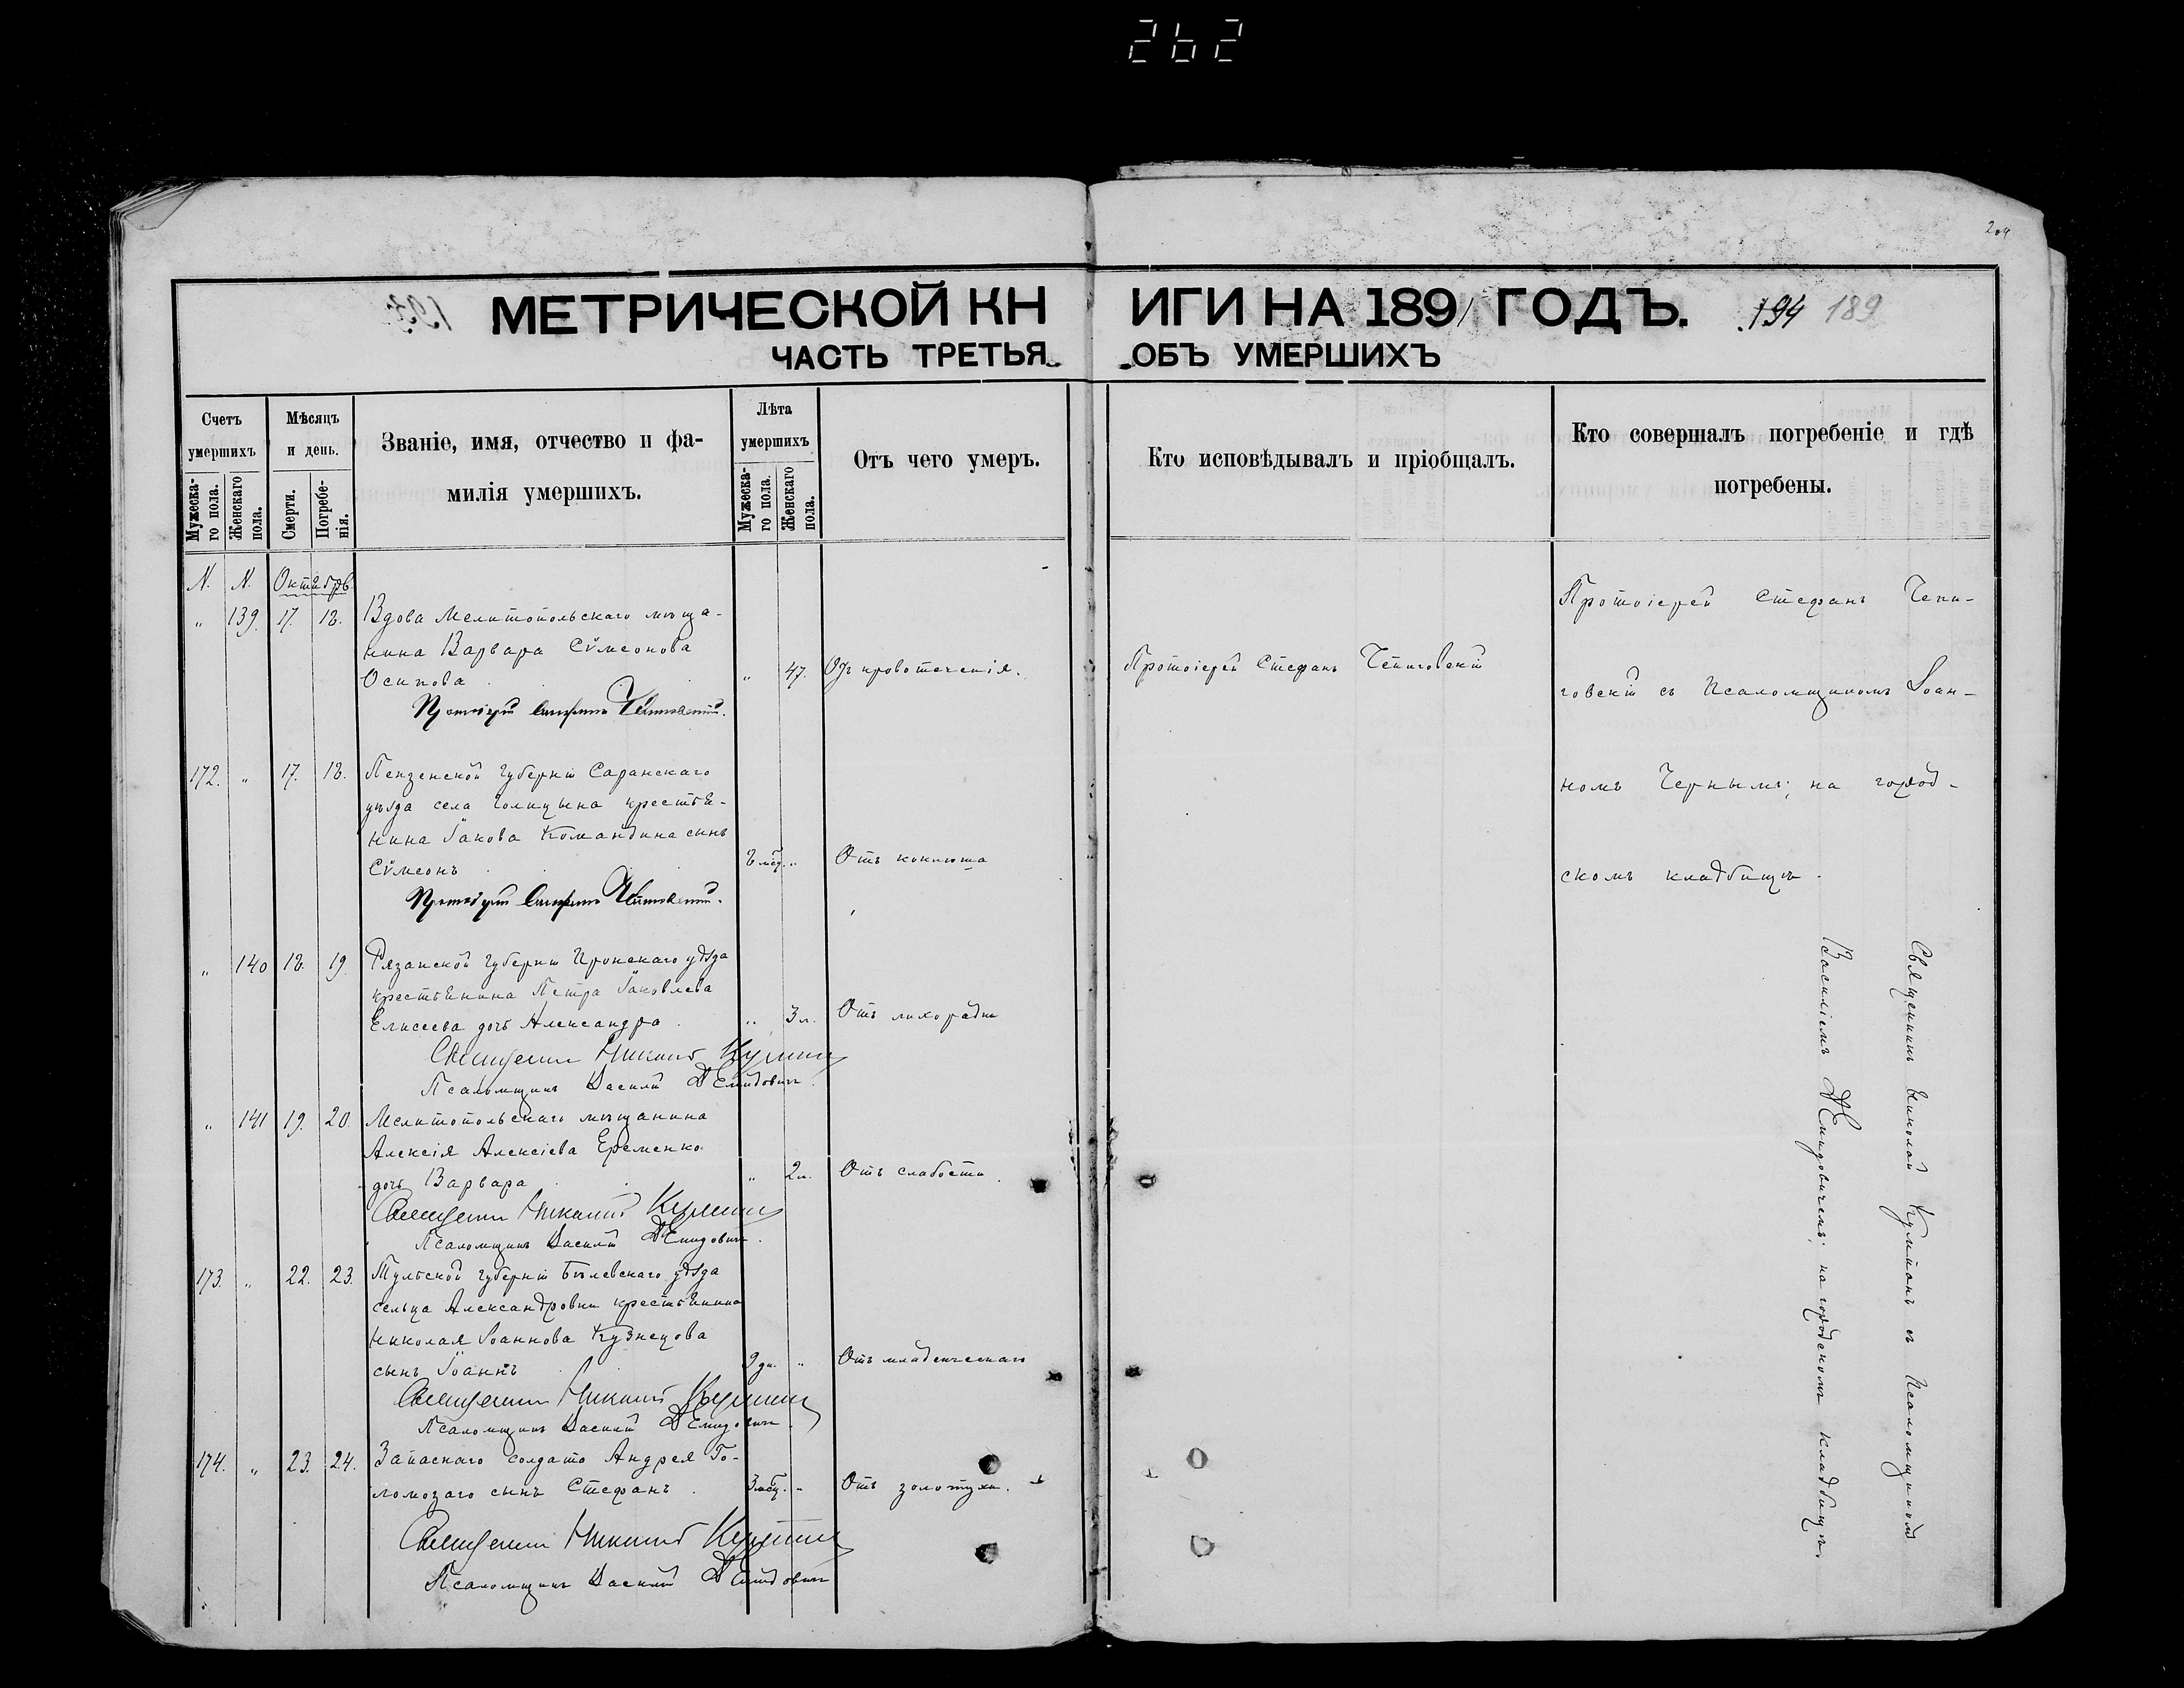 262
204
МЕТРИЧЕСКОЙ КНИГИ НА 1891 ГОДЪ. 194 189
ЧАСТЬ ТРЕТЬЯ ОБЪ УМЕРШИХЪ
Счетъ умершихъ
Мужеска-го пола.
Женскаго пола.
Мѣсяцъ и день.
Смерти.
Погребе-нія.
Званіе, имя, отчество и фа-
милія умершихъ.
Лѣта умершихъ
Мужеска-го пола.
Женскаго пола.
Отъ чего умеръ.
Кто исповѣдывалъ и пріобщалъ.
Кто совершалъ погребеніе и гдѣ
погребены.
N. N. Октябрь
" 139. 17. 18. Вдова Мелитопольскаго мѣща-
нина Варвара Сѵмеонова
Осипова " 47. Отъ кровотеченія. Протоіерей Стефанъ Чепиговскій
Протоіерей Стефанъ Чепиговскій.
Протоіерей Стефанъ Чепи-
говскій съ Псаломщикомъ Іоан-
номъ Чернымъ; на город-
скомъ кладбищѣ.
172. " 17. 18. Пензенской губерніи Саранскаго
уѣзда села Голицына крестья-
нина Іакова Командина сынъ
Сѵмеонъ 8 мѣс. " Отъ коклюша
Протоіерей Стефанъ Чепиговскій.
" 140 18. 19. Рязанской губерніи Пронскаго уѣзда
крестьянина Петра Іаковлева
Елисеева дочь Александра. " 3 л. Отъ лихорадки
Священникъ Николай
Псаломщикъ Василій Демидовичъ.
" 141 19. 20. Мелитопольскаго мѣщанина
Алексія Алексіева Еременко
дочь Варвара " 2 л. Отъ слабости.
Священникъ Николай
Псаломщикъ Василій Демидовичъ.
173. " 22. 23. Тульской губерніи Бѣлевскаго уѣзда
сельца Александровки крестьянина
Николая Іоаннова Кузнецова
сынъ Іоаннъ 9 дн. " Отъ младенческаго
Священникъ Николай
Псаломщикъ Василій Демидовичъ.
174. " 23. 24. Запаснаго солдата Андрея Го-
ломозаго сынъ Стефанъ. 3 мѣс. " Отъ золотухи.
Священникъ Николай
Псаломщикъ Василій Демидовичъ
Священникъ Николай съ Псаломщикомъ
Василіемъ Демидовичемъ; на городскомъ кладбищѣ.